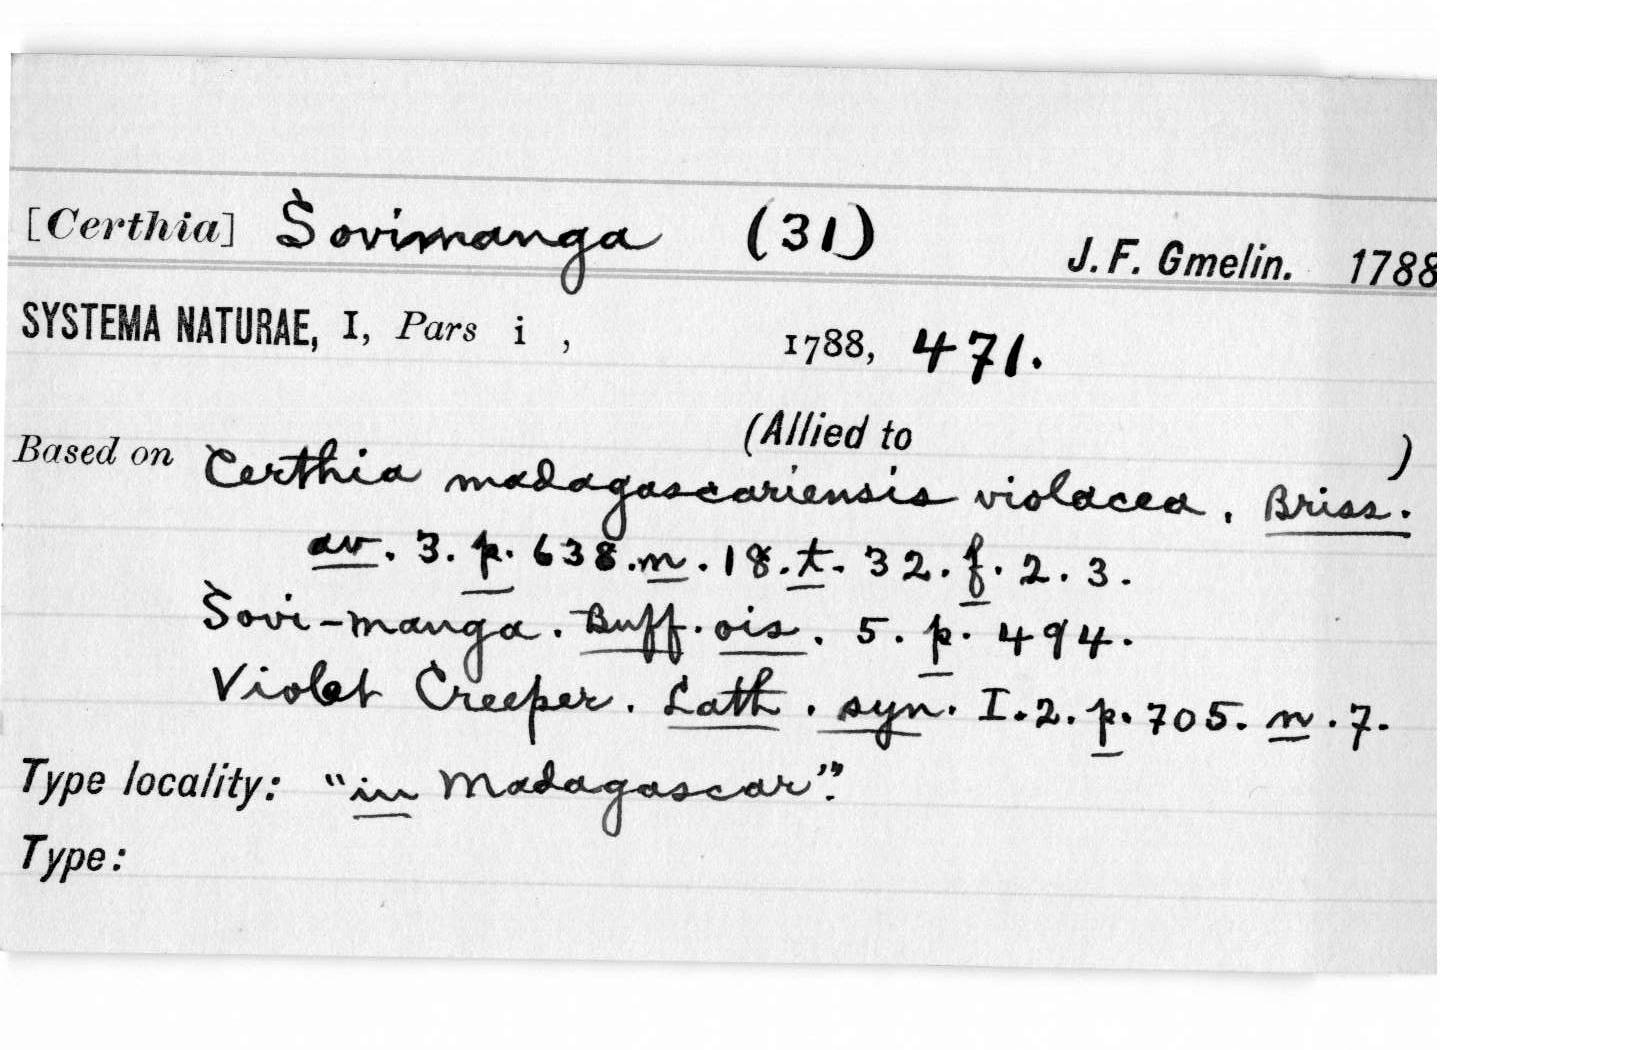 [Certhia] Sovimanga (31) J. F. Gmelin. 1788
SYSTEMA NATURAE, I, Pars i , 1788, 471.
(Allied to )
Based on Certhia madagascariensis violacea. Briss.
av. 3. p. 638. n. 18. t. 32. f. 2. 3.
Sovi-manga. Buff. ois. 5. p. 494.
Violet Creeper. Lath. syn. I. 2. p. 705. n. 7.
Type locality: "in Madagascar".
Type: